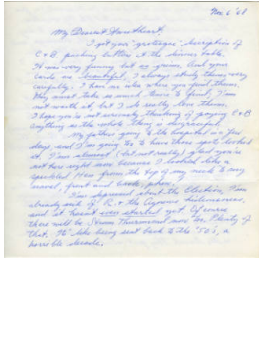 Nov 6 '68
My Dearest Sweetheart,
I got your "grotesque" description of
C + B pushing butter at the senior center.
It was very funny but so grim. And your
cards are beautiful, I always study them very
carefully. I have no idea where you find them,
they must take so much time to find, I'm
not worth it, but I do really love them.
I hope you're not seriously thinking of paying C + B
anything as the whole thing is disgraceful.
My father's going to the hospital in a few
days, and I'm going to have those spots looked
at. I'm almost (but not really) glad you're
not here right now because I looked like a
speckled Hen from the top of my neck to my
navel, front and back, phew.
I'm depressed about the Election, I'm
already sick of R. + the Agnews
and it hasn't even started yet. Of course
there will be Strom Thurmond now too. Plenty of
that. It's like being sent back to the '50's, a
horrible decade.